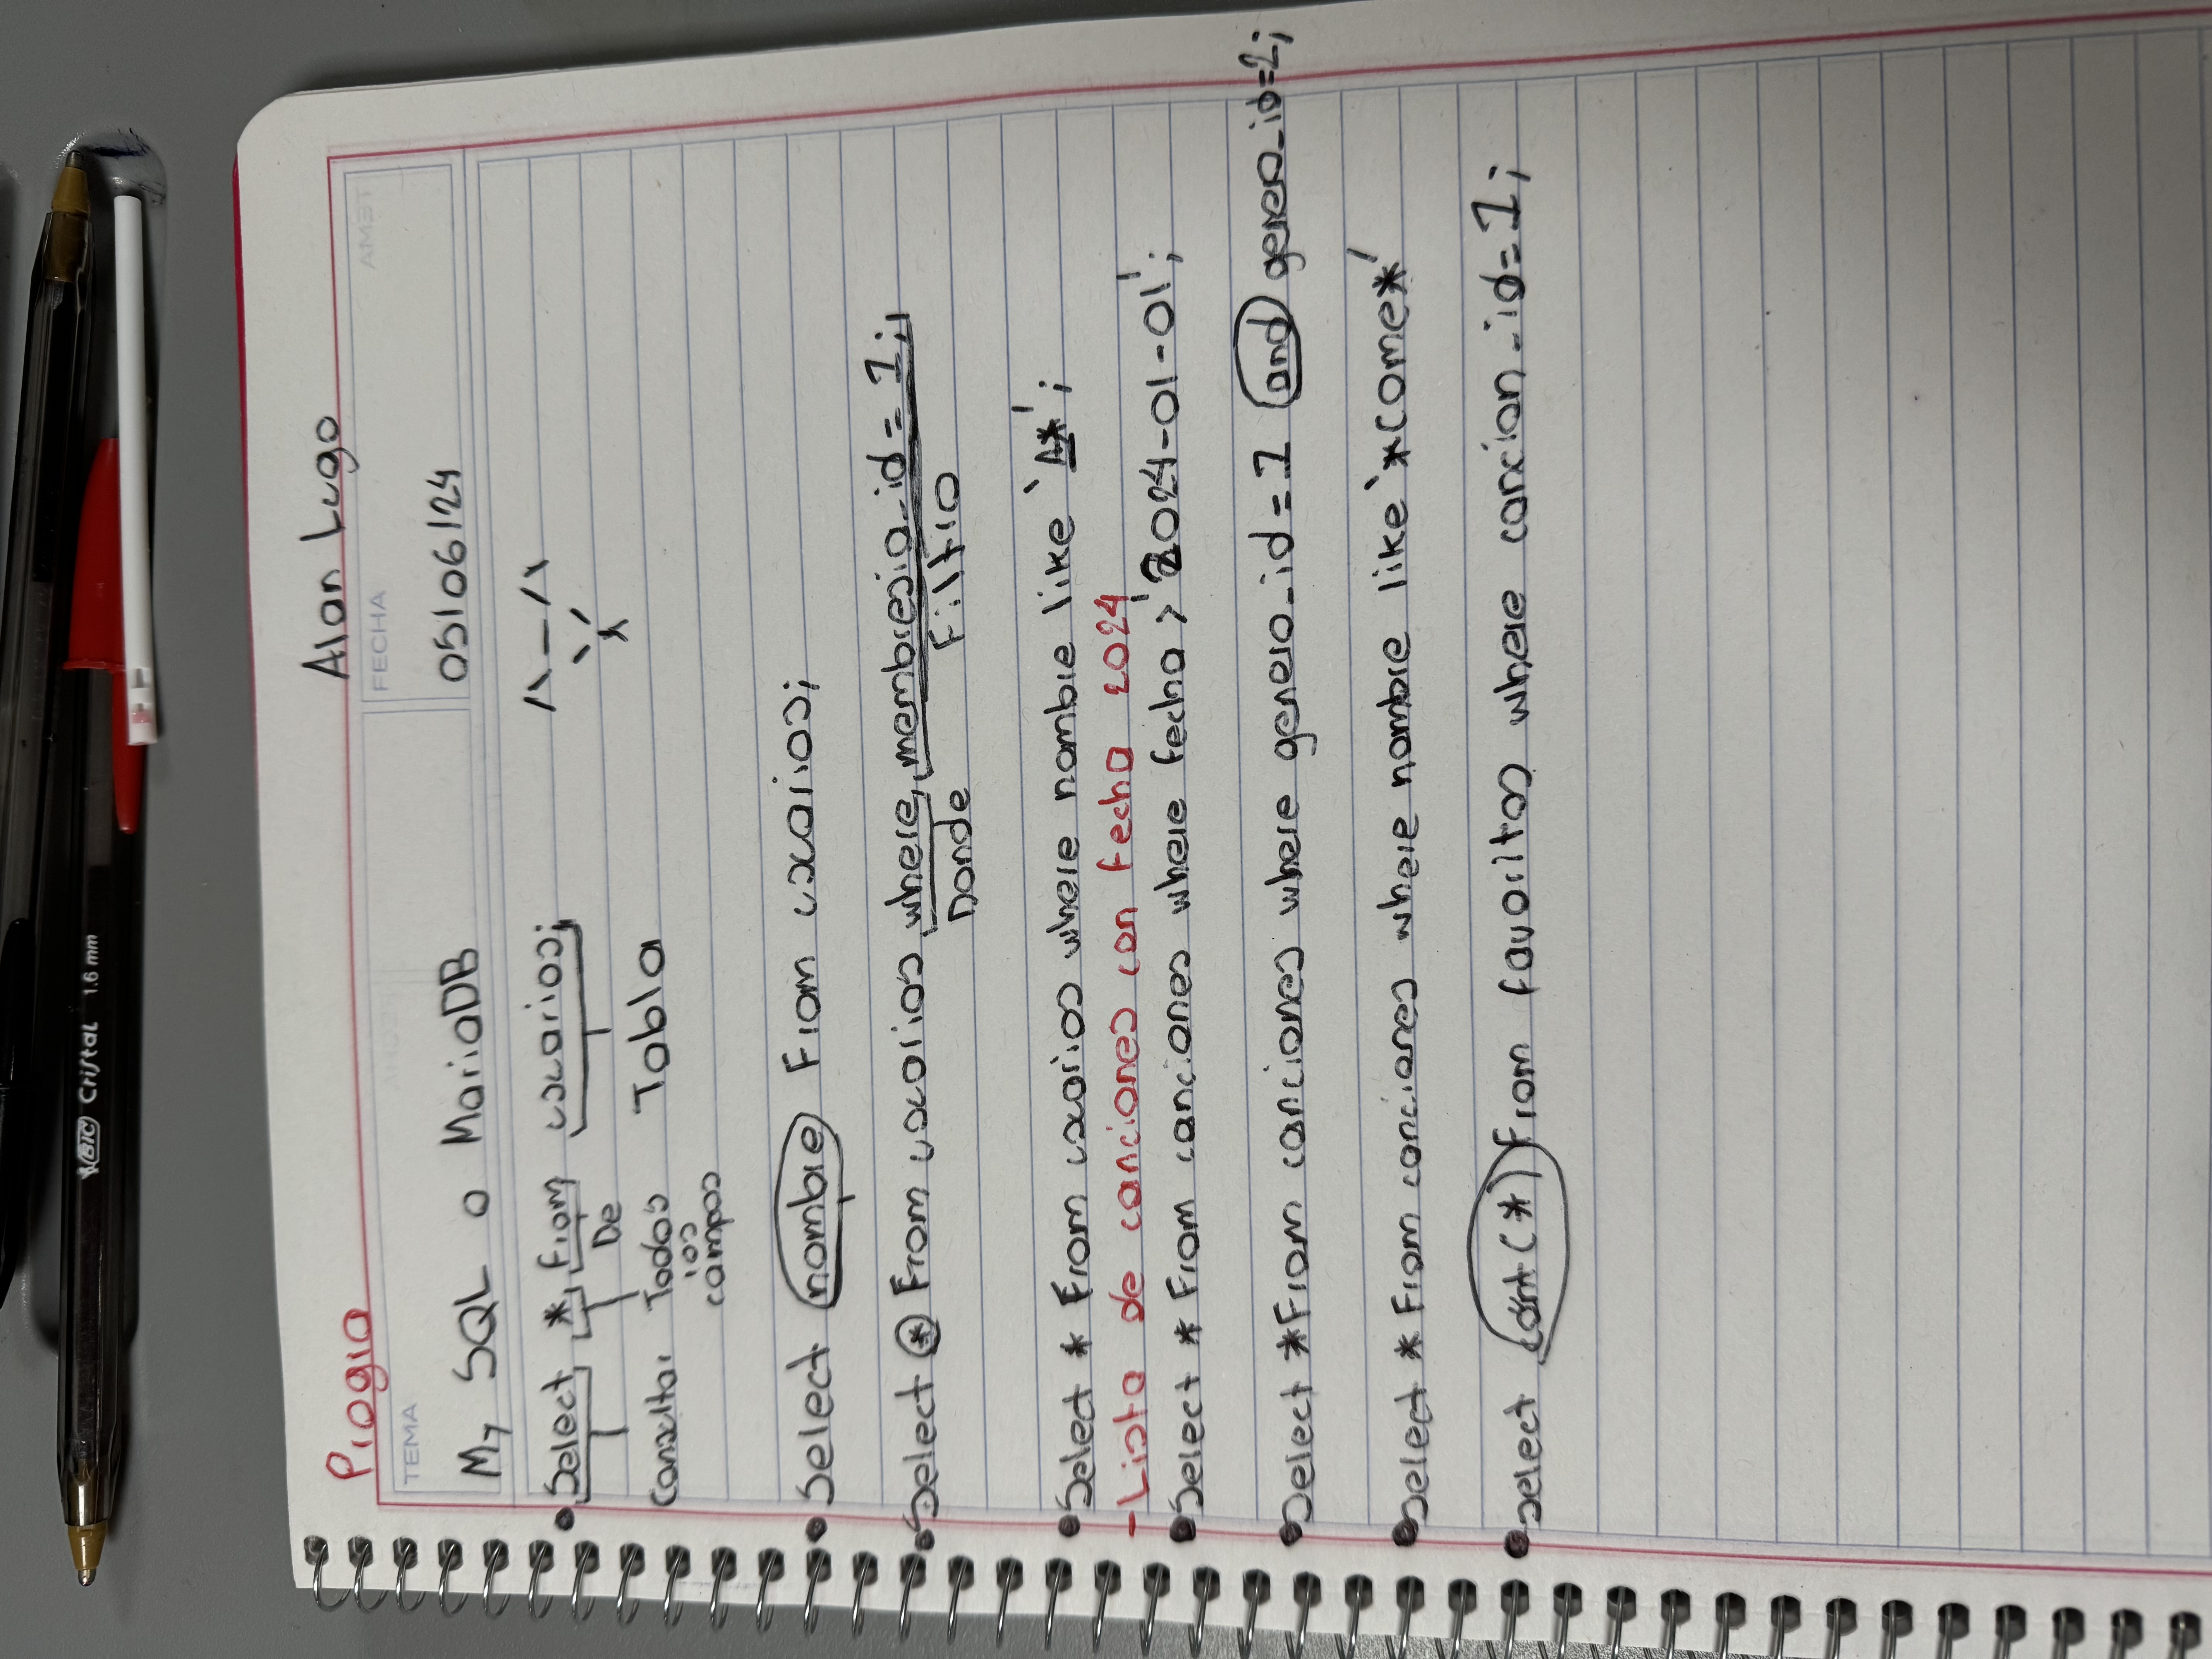 BIC Cristal 1.6 mm
Progra
Alan Lugo
TEMA
FECHA
My SQL o MariaDB
05/06/24
• Select * From usuarios;
De
Consultar Todos los campos Tabla
• Select nombre From usuarios;
• Select * From usuarios where membresia_id = 1;
Donde Filtro
• Select * From usuarios where nombre like 'A*';
- Lista de canciones con fecha 2024
• Select * From canciones where fecha > '2024-01-01';
• Select * From canciones where genero_id = 1 and genero_id=2;
• Select * From canciones where nombre like '*come*'
• Select cont(*) From favoritos where cancion_id=1;